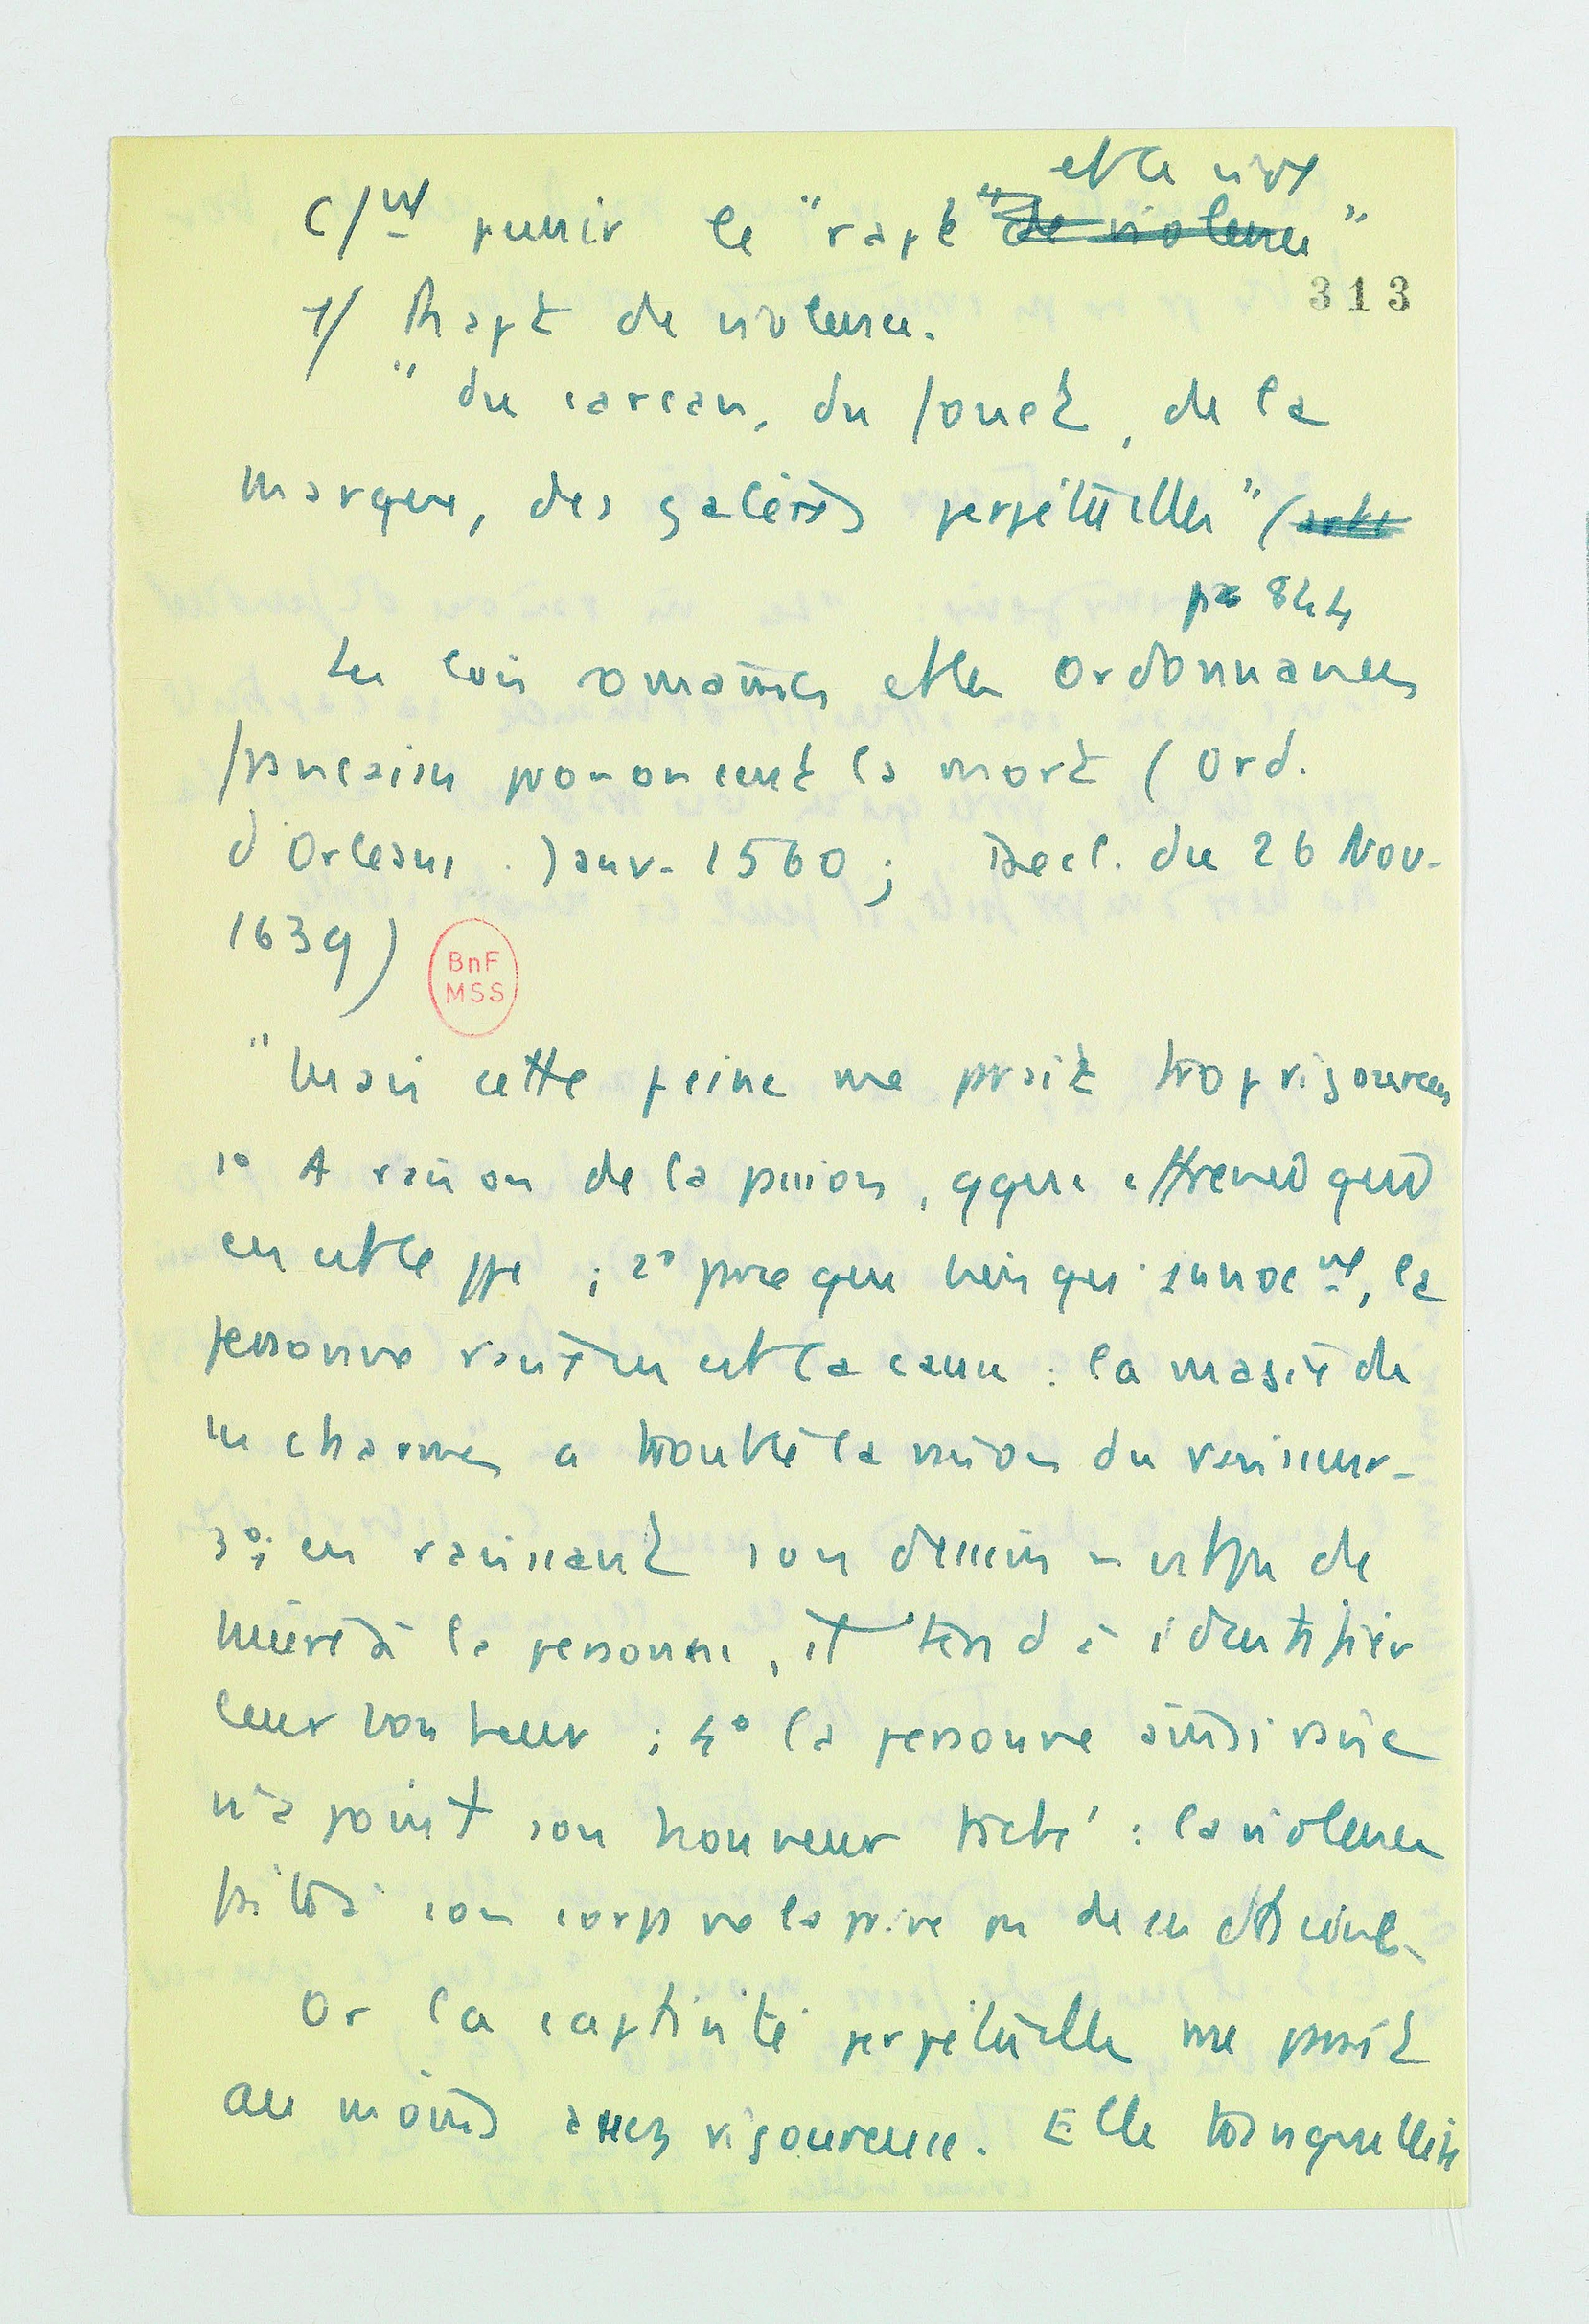 et le viol
C/nt punir le "rapt "de violence"
313
1/ Rapt de violence.
"du carcan, du fouet, de la
marque, des galères perpétuelles" (
p 844
Les lois romaines et les Ordonnances
françaises prononcent la mort (Ord.
d'Orleans. Janv. 1560; Decl. du 26 Nov.
1639)
BnF
MSS
"Mais cette peine me parait trop rigoureuse
1° A raison de la passion, qque effrenée qu
en est le ppe ; 2° parce que bien que innocent, la
personne ravie en est la cause : la magie de
ses charmes a troublé la raison du ravisseur.
3°; en ravissant son dessein n'est pas de
nuire à la personne, il tend à identifier
leur bonheur ; 4° la personne ainsi ravie
n'a point son honneur taché : la violence
faite à son corps ne la prive pas de son
Or la captivité perpétuelle me parait
au moins assez rigoureuse. Elle tranquillise